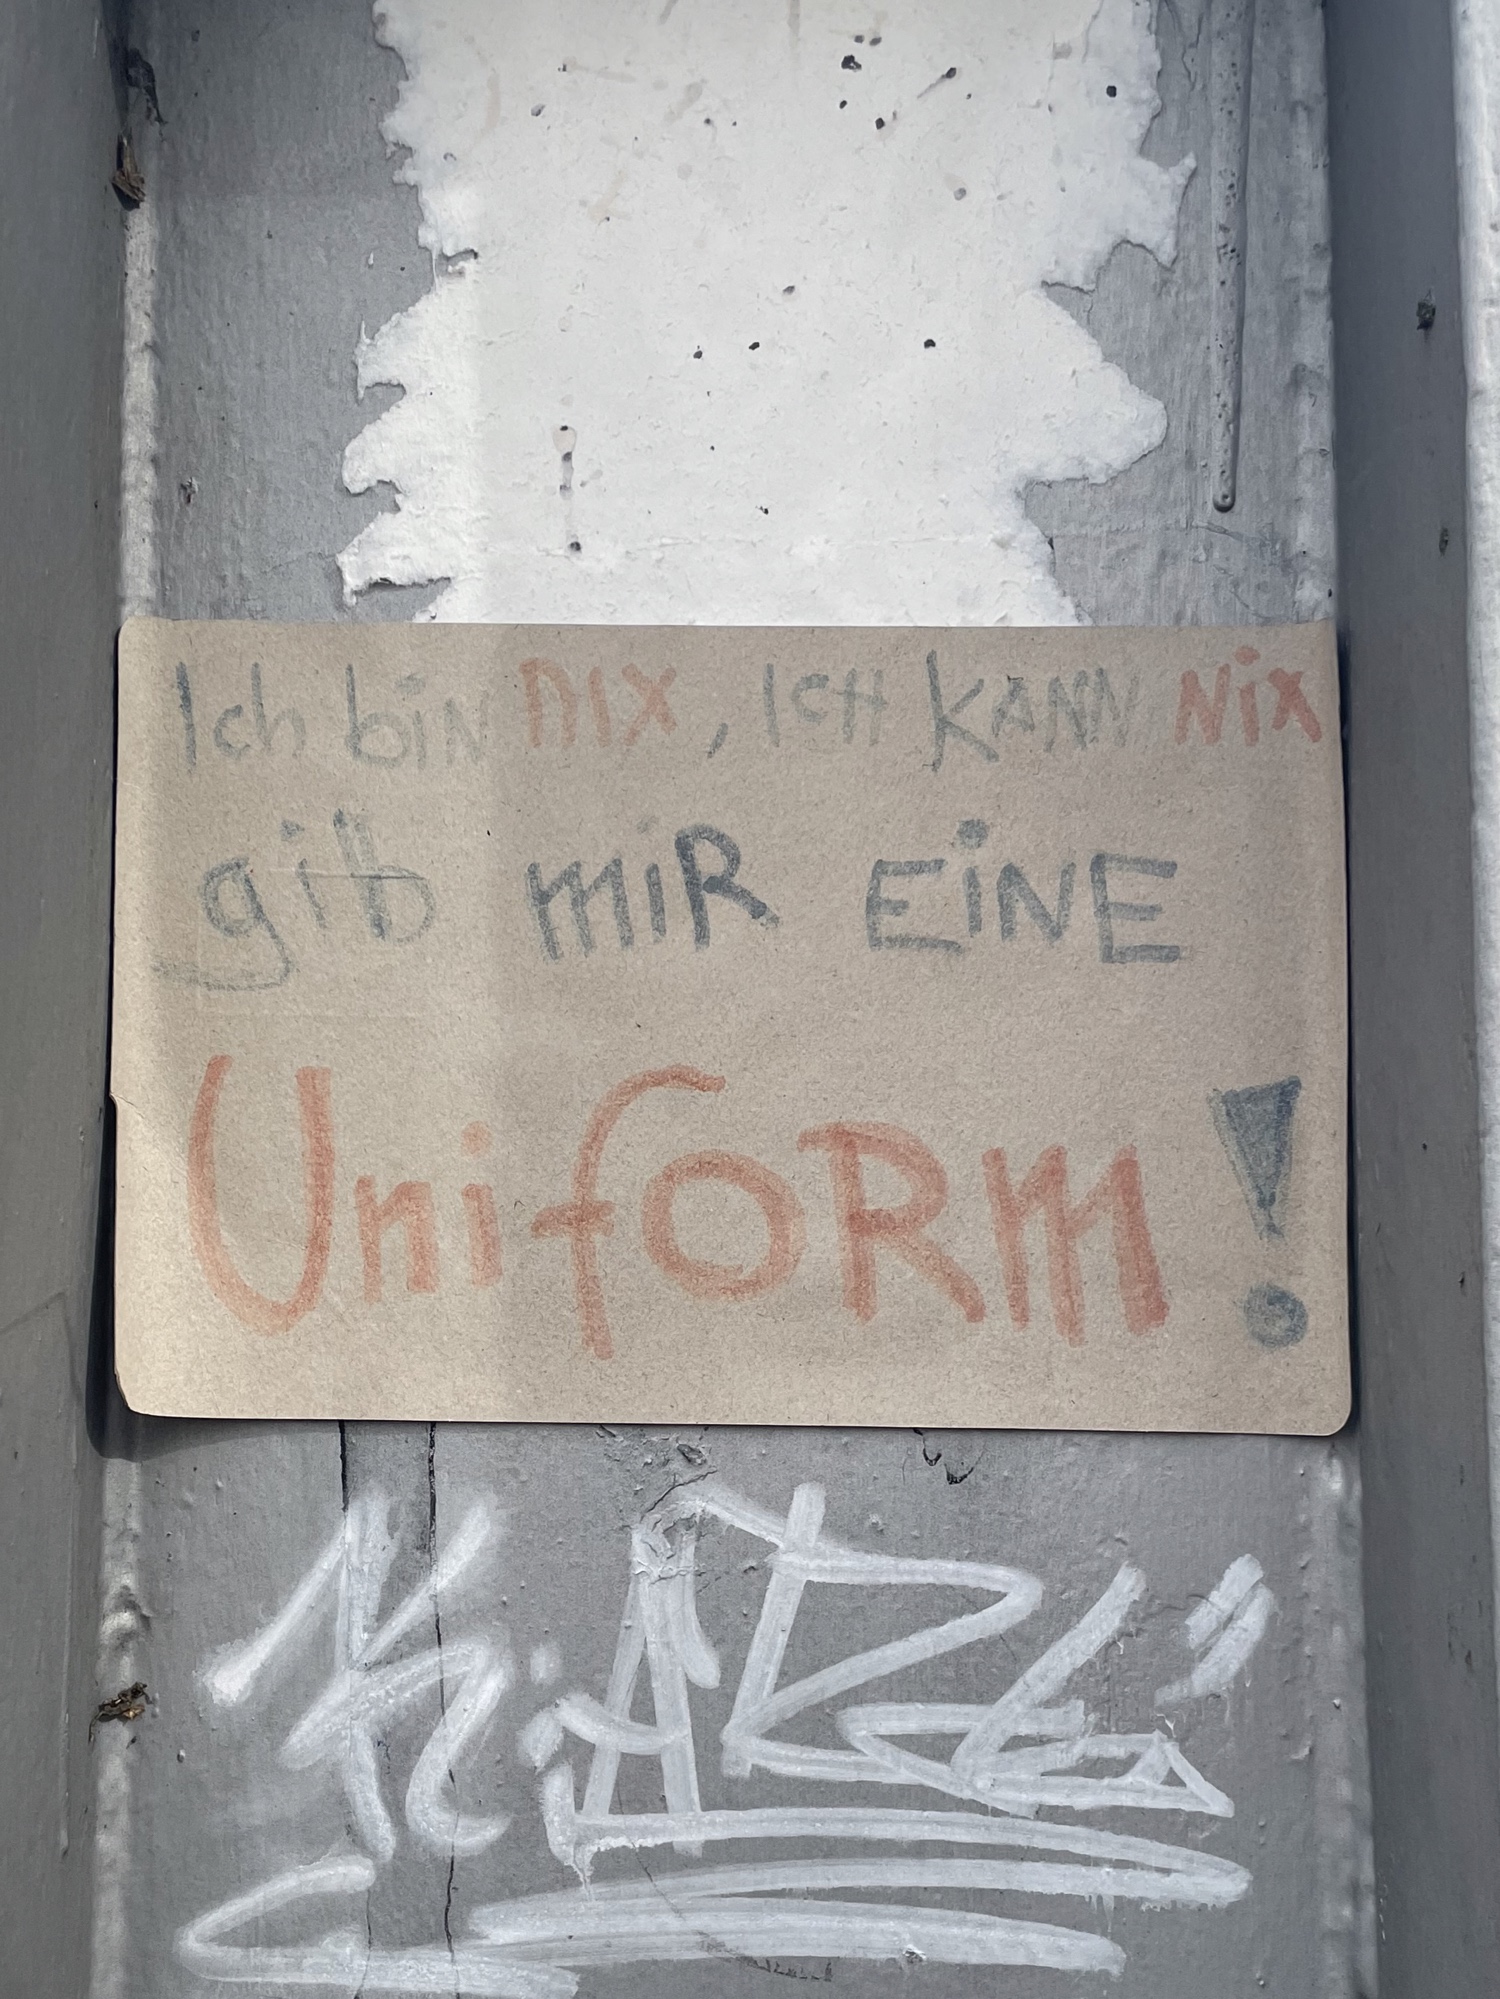 Ich biN NIX, IcH KANN NiX
gib miR EiNE
UnifORm!